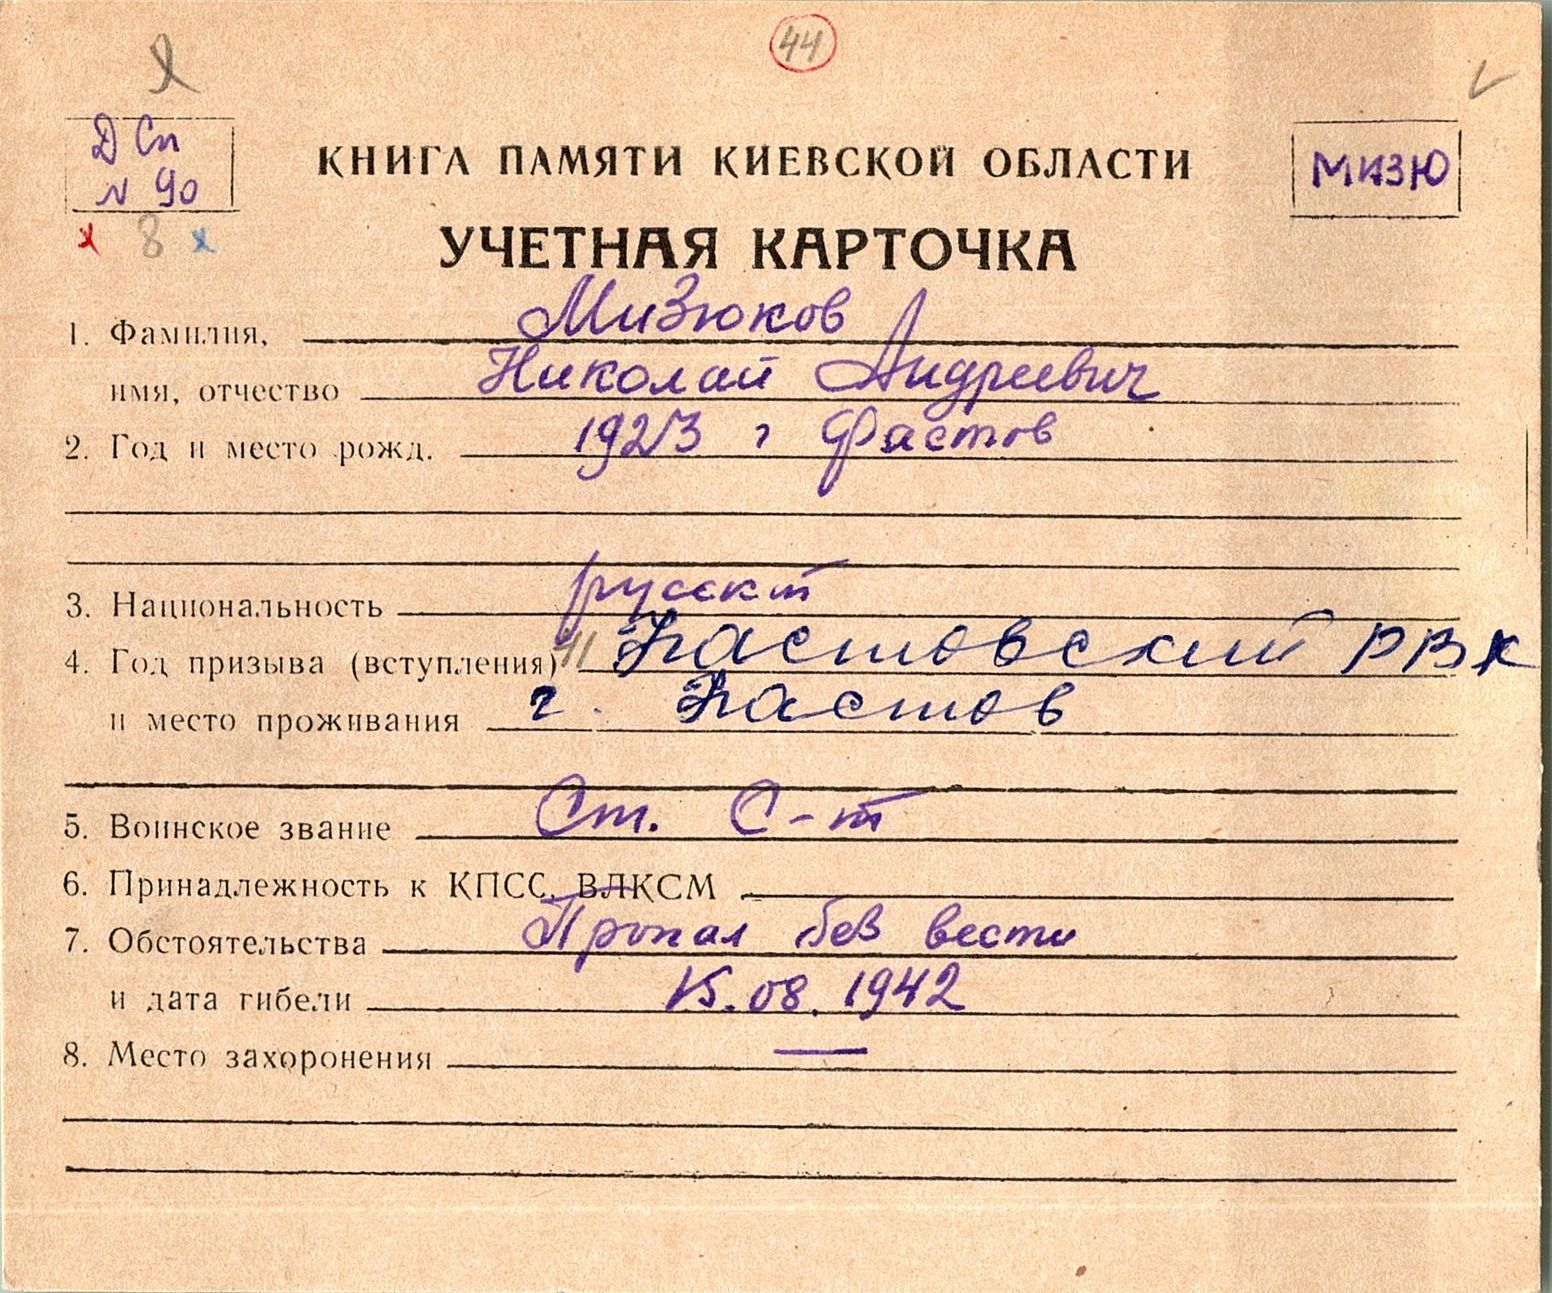 44
Д Сп
N 90
8
КНИГА ПАМЯТИ КИЕВСКОЙ ОБЛАСТИ
МИЗЮ
УЧЕТНАЯ КАРТОЧКА
1. Фамилия, Мизюков
имя, отчество Николай Андреевич
2. Год и место рожд. 1923 г Фастов
3. Национальность русск
4. Год призыва (вступления) 41 Фастовский РВК
и место проживания г. Фастов
5. Воинское звание Ст. С-т
6. Принадлежность к КПСС, ВЛКСМ
7. Обстоятельства Пропал без вести
и дата гибели 15.08.1942
8. Место захоронения —